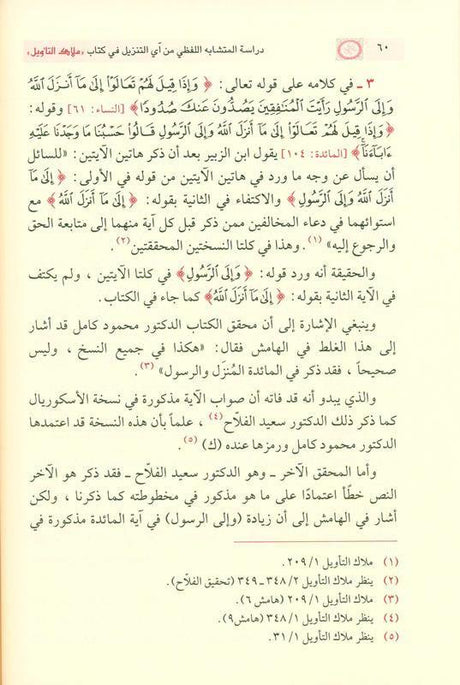 ٦٠
دراسة المتشابه اللفظي من آي التنزيل في كتاب «ملاك التأويل»
٣ ـ في كلامه على قوله تعالى: ﴿ وَإِذَا قِيلَ لَهُمْ تَعَالَوْا۟ إِلَىٰ مَآ أَنزَلَ ٱللَّهُ
وَإِلَى ٱلرَّسُولِ رَأَيْتَ ٱلْمُنَـٰفِقِينَ يَصُدُّونَ عَنكَ صُدُودًا﴾ [النساء: ٦١] وقوله:
﴿وَإِذَا قِيلَ لَهُمْ تَعَالَوْا۟ إِلَىٰ مَآ أَنزَلَ ٱللَّهُ وَإِلَى ٱلرَّسُولِ قَالُوا۟ حَسْبُنَا مَا وَجَدْنَا عَلَيْهِ
ءَابَآءَنَآ﴾ [المائدة: ١٠٤] يقول ابن الزبير بعد أن ذكر هاتين الآيتين: «للسائل
أن يسأل عن وجه ما ورد في هاتين الآيتين من قوله في الأولى: ﴿إِلَىٰ مَآ
أَنزَلَ ٱللَّهُ وَإِلَى ٱلرَّسُولِ﴾ والاكتفاء في الثانية بقوله: ﴿إِلَىٰ مَآ أَنزَلَ ٱللَّهُ﴾ مع
استوائهما في دعاء المخالفين ممن ذكر قبل كل آية منهما إلى متابعة الحق
والرجوع إليه»(١). وهذا في كلتا النسختين المحققتين(٢).
والحقيقة أنه ورد قوله: ﴿وَإِلَى ٱلرَّسُولِ﴾ في كلتا الآيتين ، ولم يكتف
في الآية الثانية بقوله: ﴿إِلَىٰ مَآ أَنزَلَ ٱللَّهُ﴾ كما جاء في الكتاب.
وينبغي الإشارة إلى أن محقق الكتاب الدكتور محمود كامل قد أشار
إلى هذا الغلط في الهامش فقال: «هكذا في جميع النسخ، وليس
صحيحاً ، فقد ذكر في المائدة المُنزَل والرسول»(٣).
والذي يبدو أنه قد فاته أن صواب الآية مذكورة في نسخة الأسكوريال
كما ذكر ذلك الدكتور سعيد الفلاّح(٤) ، علماً بأن هذه النسخة قد اعتمدها
الدكتور محمود كامل ورمزها عنده (ك)(٥).
وأما المحقق الآخر ـ وهو الدكتور سعيد الفلاّح ـ فقد ذكر هو الآخر
النص خطأً اعتمادًا على ما هو مذكور في مخطوطته كما ذكرنا ، ولكن
أشار في الهامش إلى أن زيادة (وإلى الرسول) في آية المائدة مذكورة في
(١) ملاك التأويل ٢٠٩/١.
(٢) ينظر ملاك التأويل ٣٤٨/٢ ـ ٣٤٩ (تحقيق الفلاح).
(٣) ملاك التأويل ٢٠٩/١ (هامش ٦).
(٤) ينظر ملاك التأويل ٣٤٨/١ (هامش٩).
(٥) ينظر ملاك التأويل ٣١/١.